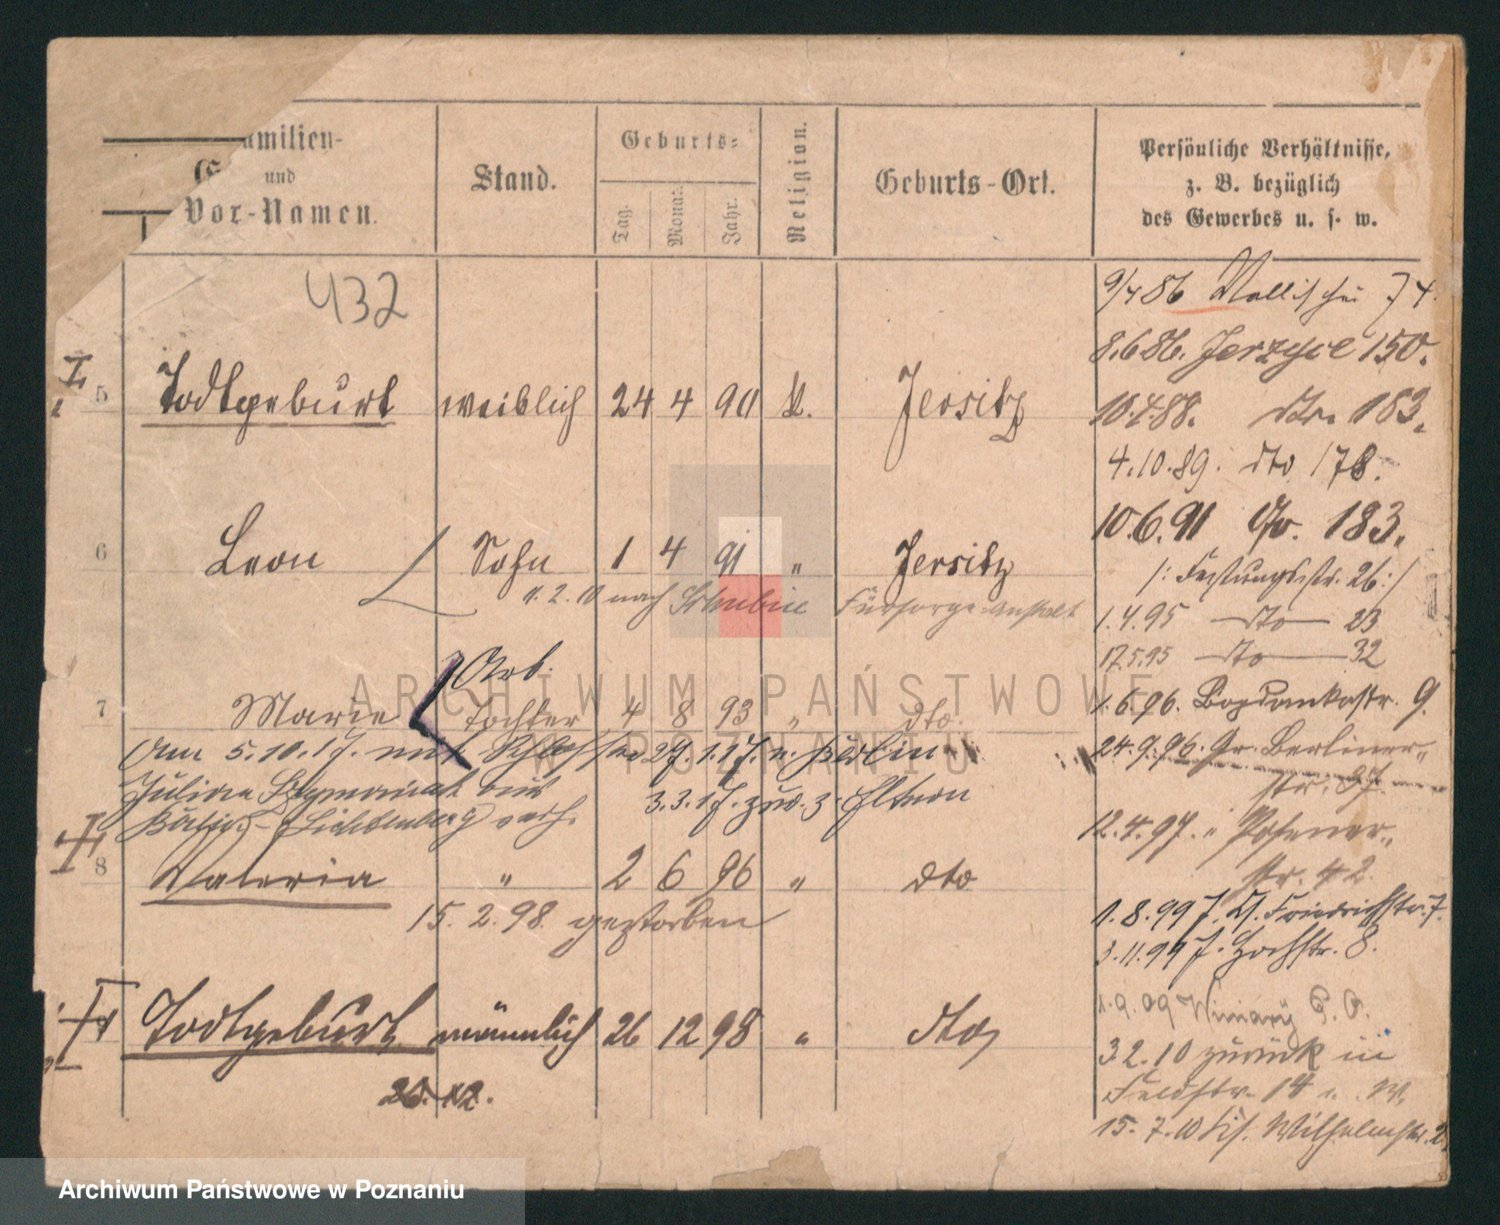 amilien-
und
Vor-Namen.
Stand.
Geburts-
Tag.
Monat.
Jahr.
Religion.
Geburts-Ort.
Persönliche Verhältnisse,
z. B. bezüglich
des Gewerbes u. s. w.
432
5 Todtgeburt weiblich 24 4 90 k. Jersitz
6 Leon Sohn 1 4 91 " Jersitz
11. 2. 10 nach Schubin Fürsorge-Anstalt
Arb.
7 Marie Tochter 4 8 93 " dto.
Am 5.10.17. mit 27.1.17. n. Berlin
Julian 3.3.17. zur. z. Eltern
Lichtenberg verh.
8 Valeria " 2 6 96 " dto
15. 2. 98. gestorben
Todtgeburt männlich 26 12 98 " dto
26. 12.
9/4 86 Wallischei 74.
8.6.86. Jerzyce 150.
10.4.88. dto. 183.
4.10.89. dto 178.
10.6.91 do. 183.
/: Festungsstr. 26 :/
1.4.95 dto 23
17.5.95 dto 32
1.6.96. Bogdankastr. 9.
24.9.96. Gr. Berliner-
str.
12.4.97. " Posener-
str. 42
1.8.99 J. Friedrichstr. 7.
3.11.99 J. Hochstr. 8.
1.9.09 Winiary P. O.
3 2. 10 zurück in
Feldstr. 14
15. 7. 10 Wilhelmstr. 2
ARCHIWUM PAŃSTWOWE
W POZNANIU
Archiwum Państwowe w Poznaniu